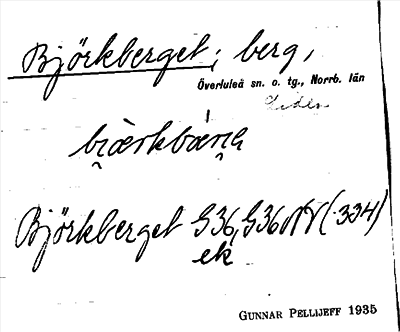 Björkberget; berg,
Överluleå sn. o. tg., Norrb. län
Björkberget G36, G36NV (334)
ek
GUNNAR PELLIJEFF 1935